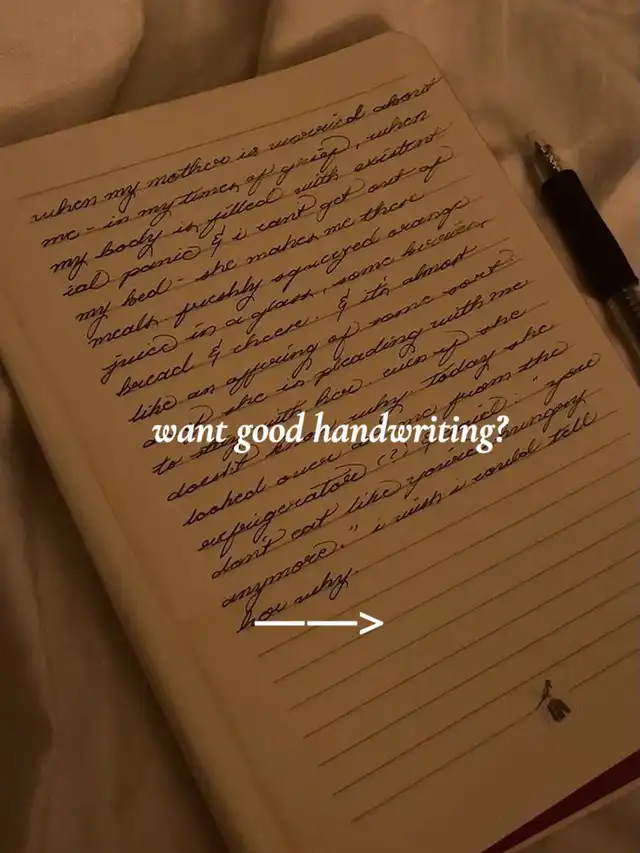 when my mother is worried about
me - in my times of grief, when
my body is filled with existent
ial panic & i cant get out of
my bed - she makes me these
meals. freshly squeezed orange
juice in a glass, some berries,
bread & cheese. & it's almost
like an offering of some sort.
she is pleading with me
to stay with her. even if she
doesn't know why. today she
want good handwriting?
looked over at me from the
refrigerator (?) & said: "you
don't eat like you're hungry
anymore." i wish i could tell
her why.